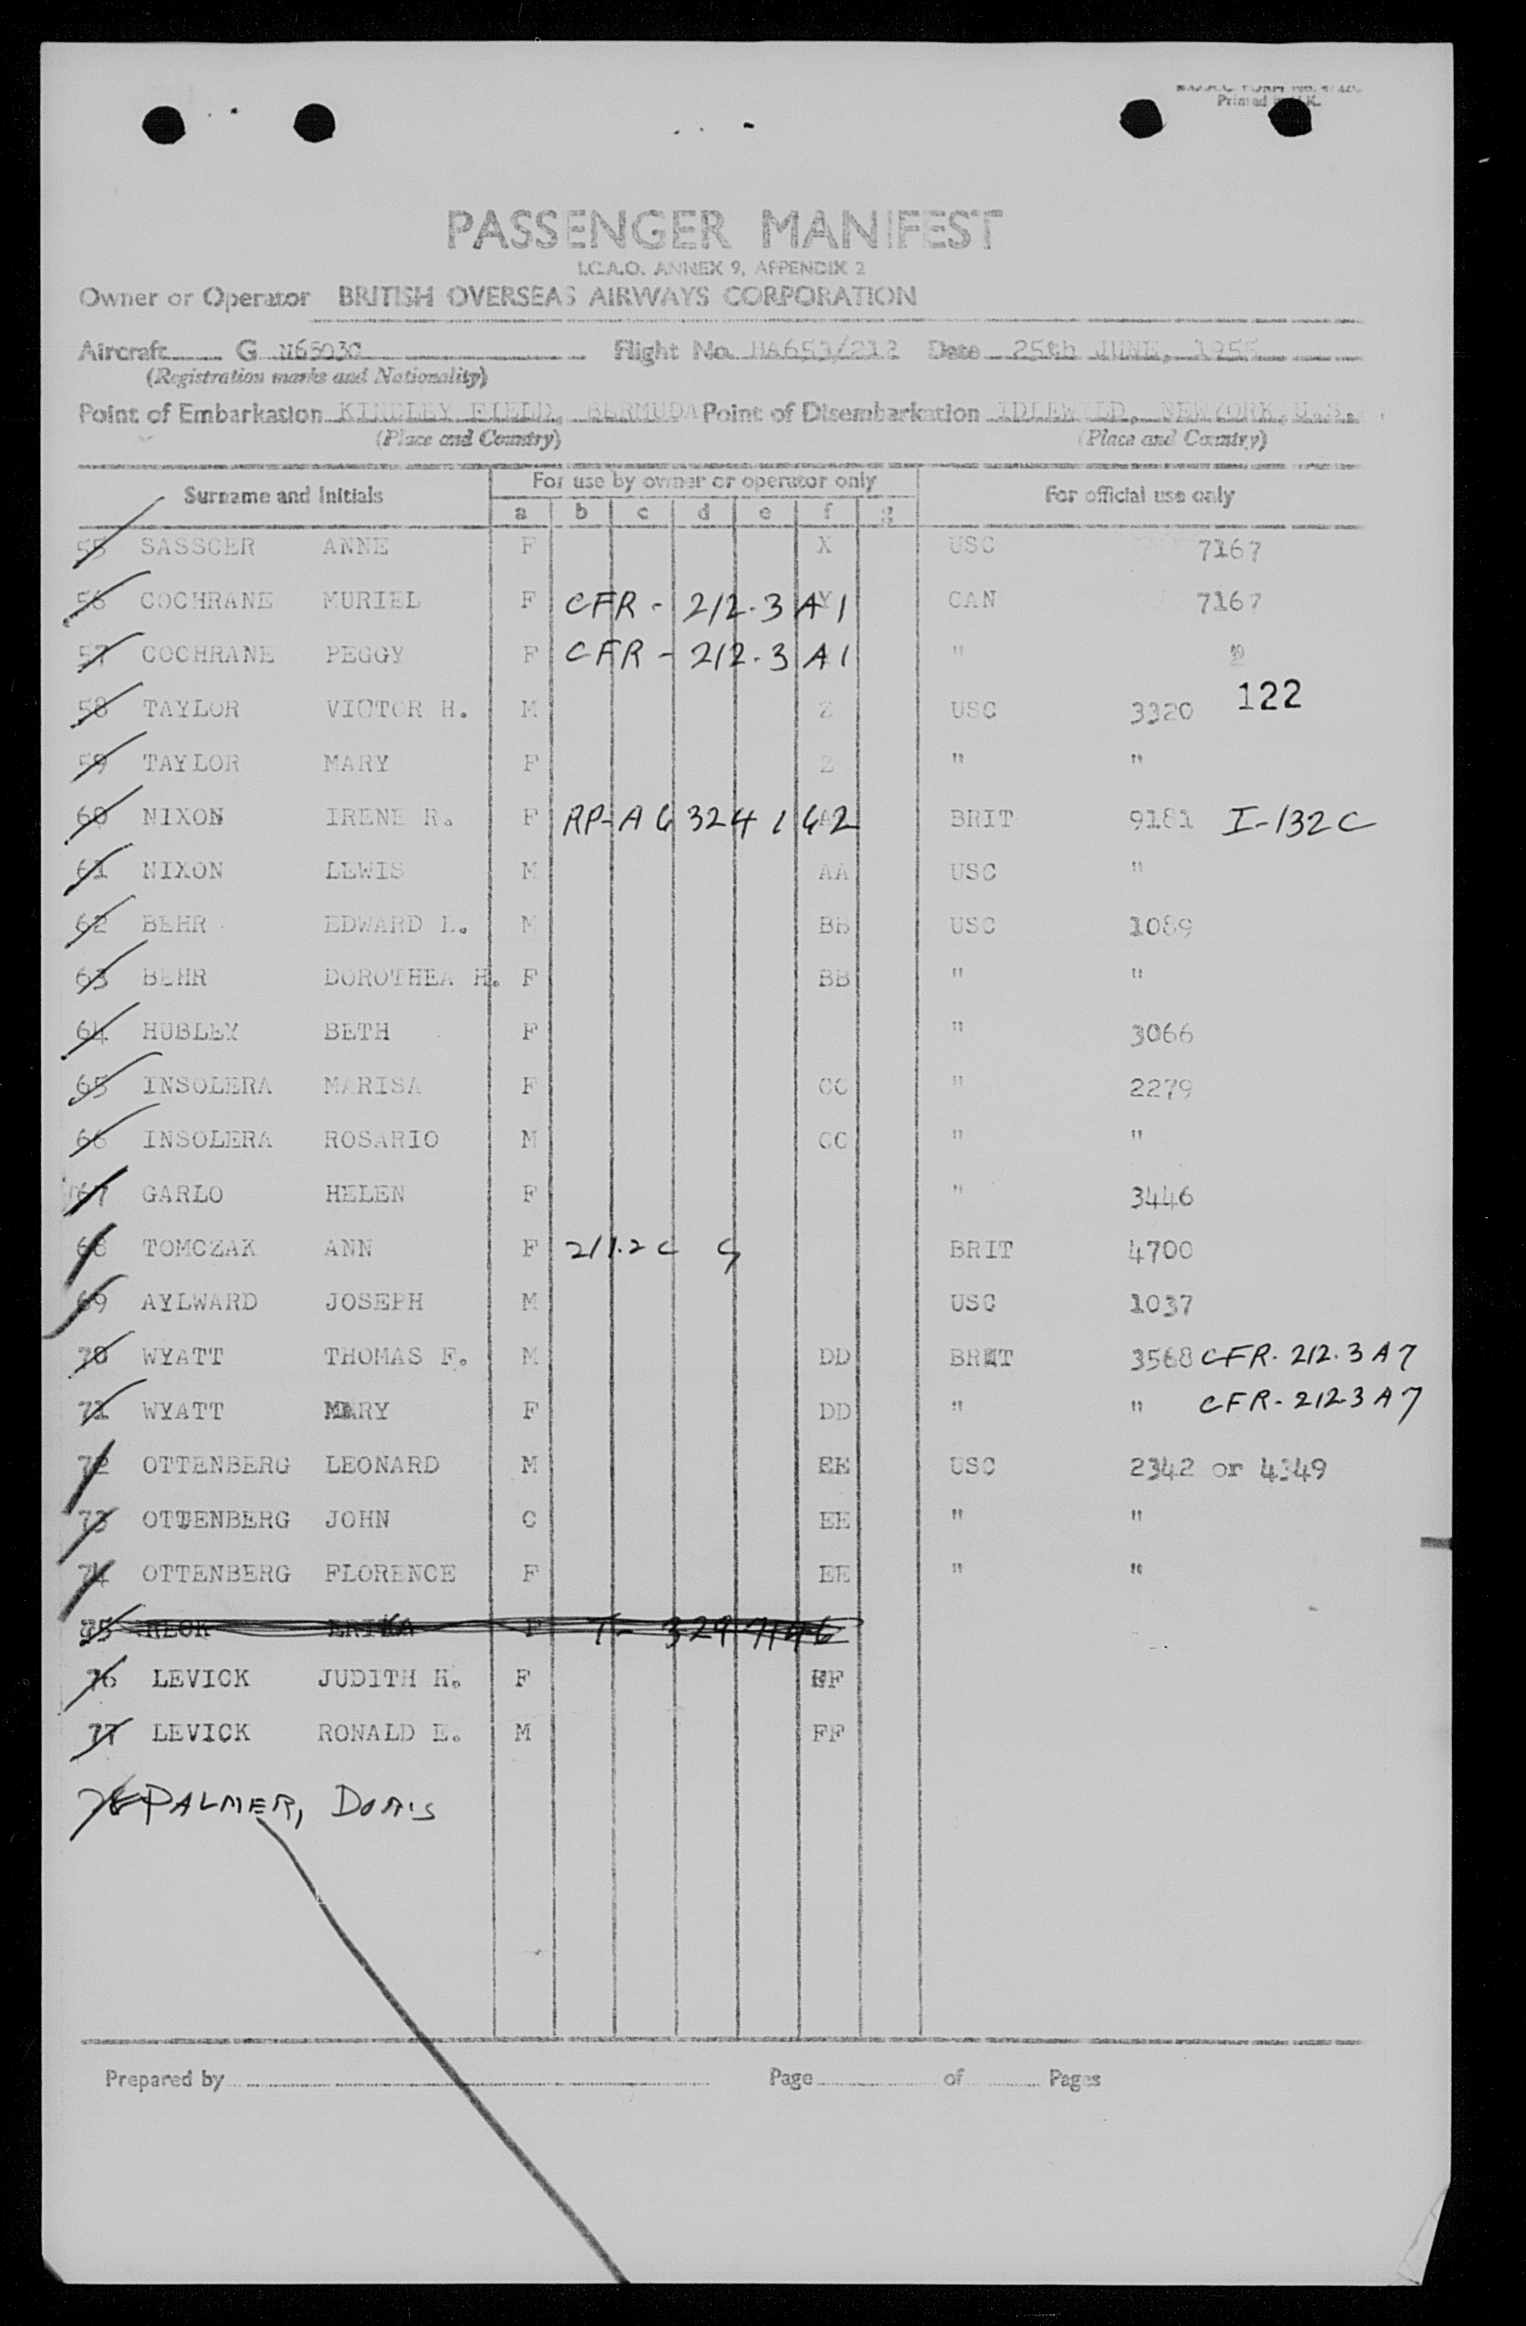 Printed U.K.
PASSENGER MANIFEST
I.C.A.O. ANNEX 9, APPENDIX 2
Owner or Operator BRITISH OVERSEAS AIRWAYS CORPORATION
Aircraft G Flight No. Date 25th JUNE, 1955
(Registration marks and Nationality)
Point of Embarkation KINDLEY FIELD, BERMUDA Point of Disembarkation IDLEWILD, NEWYORK, U.S.
(Place and Country) (Place and Country)
Surname and Initials For use by owner or operator only For official use only
a b c d e f g
55 SASSCER ANNE F X USC 7167
56 COCHRANE MURIEL F CFR - 212.3 A 1 Y CAN 7167
57 COCHRANE PEGGY F CFR - 212.3 A 1 "
122
58 TAYLOR VICTOR H. M Z USC 3320
59 TAYLOR MARY F Z " "
60 NIXON IRENE R. F BRIT 9181 I-132C
61 NIXON LEWIS M AA USC "
62 BEHR EDWARD L. M BB USC 1089
63 BEHR DOROTHEA H. F BB " "
64 HUBLEY BETH F " 3066
65 INSOLERA MARISA F CC " 2279
66 INSOLERA ROSARIO M CC " "
67 GARLO HELEN F " 3446
68 TOMCZAK ANN F 211.2 C BRIT 4700
69 AYLWARD JOSEPH M USC 1037
70 WYATT THOMAS F. M DD BRIT 3568 CFR. 212.3 A 7
71 WYATT MARY F DD " " CFR-212-3 A 7
72 OTTENBERG LEONARD M EE USC 2342 or 4349
73 OTTENBERG JOHN C EE " "
74 OTTENBERG FLORENCE F EE " "
75 ERIKA F T- 3297146
76 LEVICK JUDITH H. F FF
77 LEVICK RONALD E. M FF
78 PALMER, DORIS
Prepared by Page of Pages